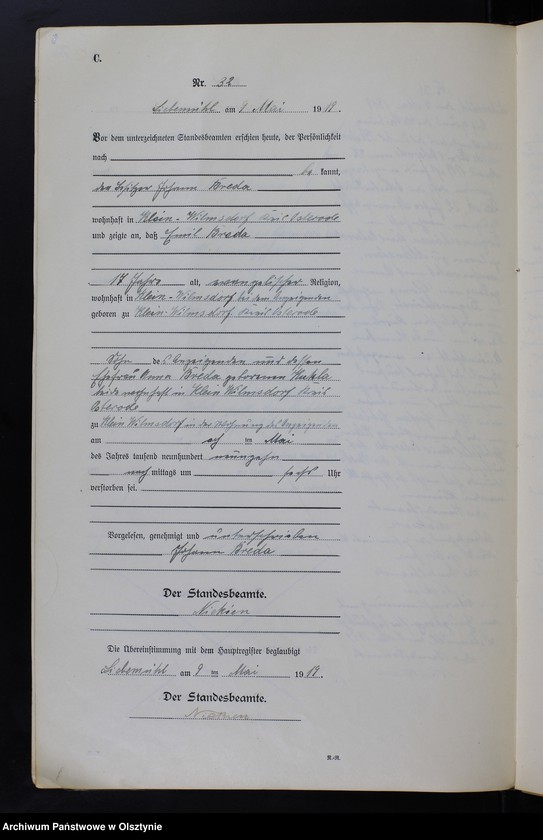 C.
Nr. 32
Liebemühl am 9 Mai 19 19.
Vor dem unterzeichneten Standesbeamten erschien heute, der Persönlichkeit
nach
be kannt,
der Besitzer Johann Breda
wohnhaft in Klein-Wilmsdorf Kreis Osterode
und zeigte an, daß Emil Breda
17 Jahre alt, evangelischer Religion,
wohnhaft in Klein-Wilmsdorf bei dem Anzeigenden
geboren zu Klein Wilmsdorf Kreis Osterode
Sohn des Anzeigenden und dessen
Ehefrau Anna Breda geborenen
beide wohnhaft in Klein Wilmsdorf Kreis
Osterode
zu Klein Wilmsdorf in der Wohnung des Anzeigenden
am ten Mai
des Jahres tausend neunhundert neunzehn
nach mittags um sechs Uhr
verstorben sei.
Vorgelesen, genehmigt und unterschrieben
Johann Breda
Der Standesbeamte.
Die Übereinstimmung mit dem Hauptregister beglaubigt
Liebemühl am 9 ten Mai 19 19.
Der Standesbeamte.
Archiwum Państwowe w Olsztynie